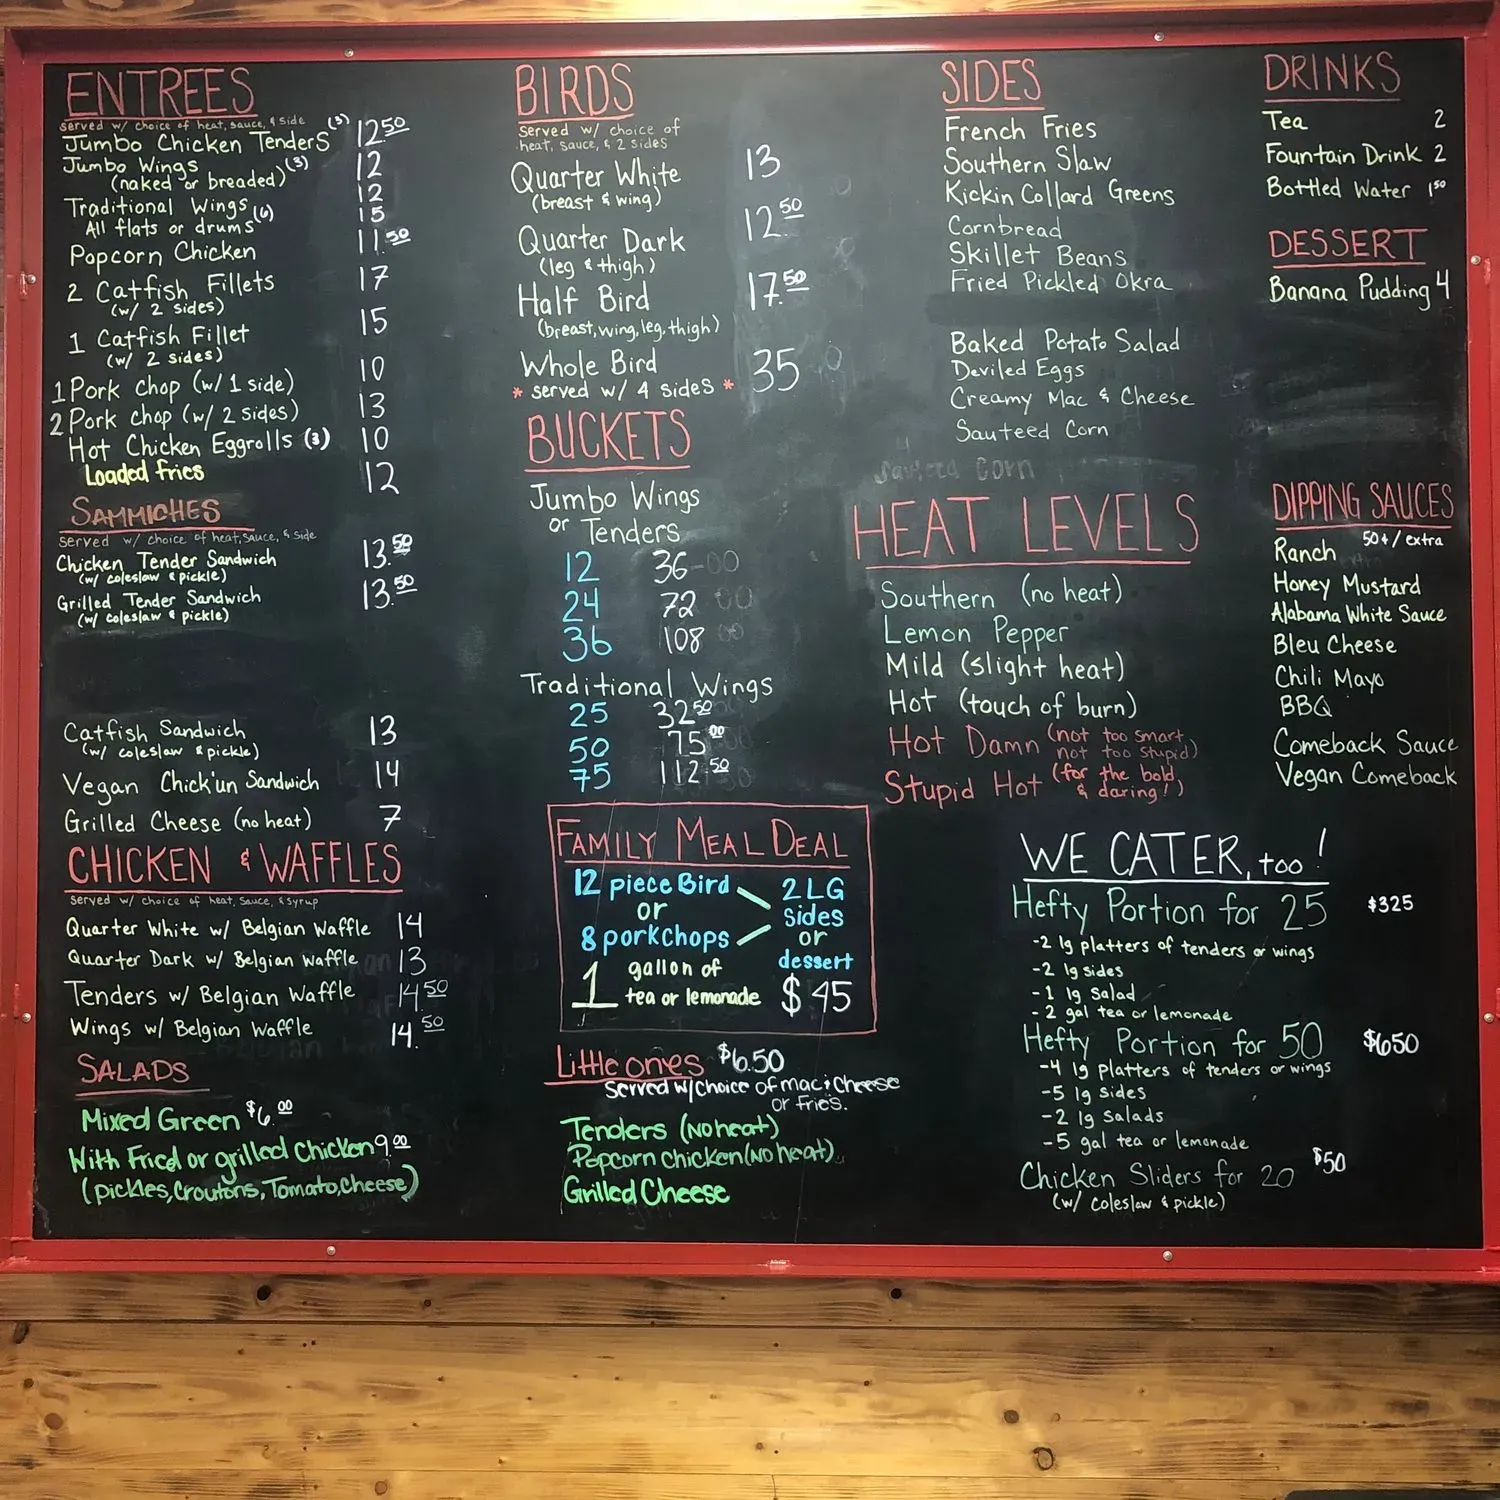 ENTREES
served w/ choice of heat, sauce, & side
Jumbo Chicken Tenders (3) 12.50
Jumbo Wings (3) 12
(naked or breaded)
Traditional Wings (6) 12
All flats or drums 15
Popcorn Chicken 11.50
2 Catfish Fillets 17
(w/ 2 sides)
1 Catfish Fillet 15
(w/ 2 sides)
1 Pork chop (w/ 1 side) 10
2 Pork chop (w/ 2 sides) 13
Hot Chicken Eggrolls (3) 10
Loaded fries 12
SAMMICHES
served w/ choice of heat, sauce, & side
Chicken Tender Sandwich 13.50
(w/ coleslaw & pickle)
Grilled Tender Sandwich 13.50
(w/ coleslaw & pickle)
Catfish Sandwich 13
(w/ coleslaw & pickle)
Vegan Chick'un Sandwich 14
Grilled Cheese (no heat) 7
CHICKEN & WAFFLES
served w/ choice of heat, sauce, & syrup
Quarter White w/ Belgian Waffle 14
Quarter Dark w/ Belgian Waffle 13
Tenders w/ Belgian Waffle 14.50
Wings w/ Belgian Waffle 14.50
SALADS
Mixed Green $6.00
With Fried or grilled Chicken 9.00
(pickles, Croutons, Tomato, Cheese)
BIRDS
served w/ choice of
heat, sauce, & 2 sides
Quarter White 13
(breast & wing)
Quarter Dark 12.50
(leg & thigh)
Half Bird 17.50
(breast, wing, leg, thigh)
Whole Bird 35
* served w/ 4 sides *
BUCKETS
Jumbo Wings
or Tenders
12 36
24 72
36 108
Traditional Wings
25 32.50
50 75.00
75 112.50
FAMILY MEAL DEAL
12 piece Bird
or
8 porkchops
2 LG
sides
or
dessert
1 gallon of
tea or lemonade
$45
Little ones $6.50
Served w/choice of mac & cheese
or fries.
Tenders (No heat)
Popcorn chicken (No heat)
Grilled Cheese
SIDES
French Fries
Southern Slaw
Kickin Collard Greens
Cornbread
Skillet Beans
Fried Pickled Okra
Baked Potato Salad
Deviled Eggs
Creamy Mac & Cheese
Sauteed Corn
HEAT LEVELS
Southern (no heat)
Lemon Pepper
Mild (slight heat)
Hot (touch of burn)
Hot Damn (not too smart,
not too stupid)
Stupid Hot (for the bold
& daring!)
DRINKS
Tea 2
Fountain Drink 2
Bottled Water 1.50
DESSERT
Banana Pudding 4
DIPPING SAUCES
50¢/extra
Ranch
Honey Mustard
Alabama White Sauce
Bleu Cheese
Chili Mayo
BBQ
Comeback Sauce
Vegan Comeback
WE CATER, too!
Hefty Portion for 25 $325
-2 lg platters of tenders or wings
-2 lg sides
-1 lg salad
-2 gal tea or lemonade
Hefty Portion for 50 $650
-4 lg platters of tenders or wings
-5 lg sides
-2 lg salads
-5 gal tea or lemonade
Chicken Sliders for 20 $50
(w/ coleslaw & pickle)